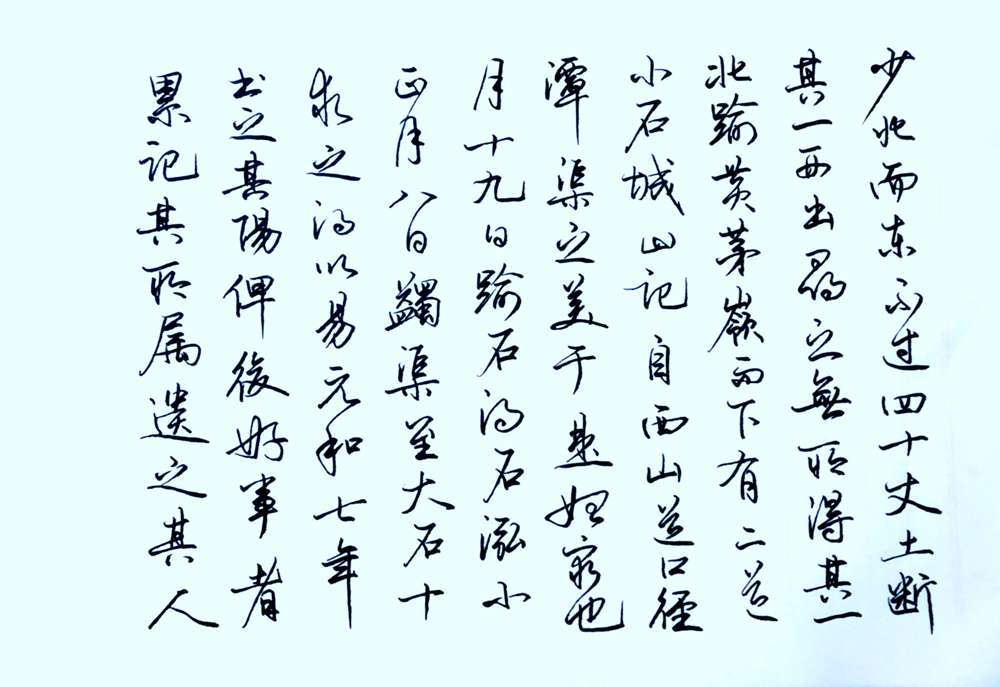 少北而东不过四十丈土断
其一西出尋之無所得其一
北踰黄茅嶺而下有二道
小石城山记自西山道口径
潭渠之美于是始窮也
月十九日踰石得石泓小
正月八日蠲渠至大石十
求之得以易元和七年
书之其陽俾後好事者
累记其所属遗之其人